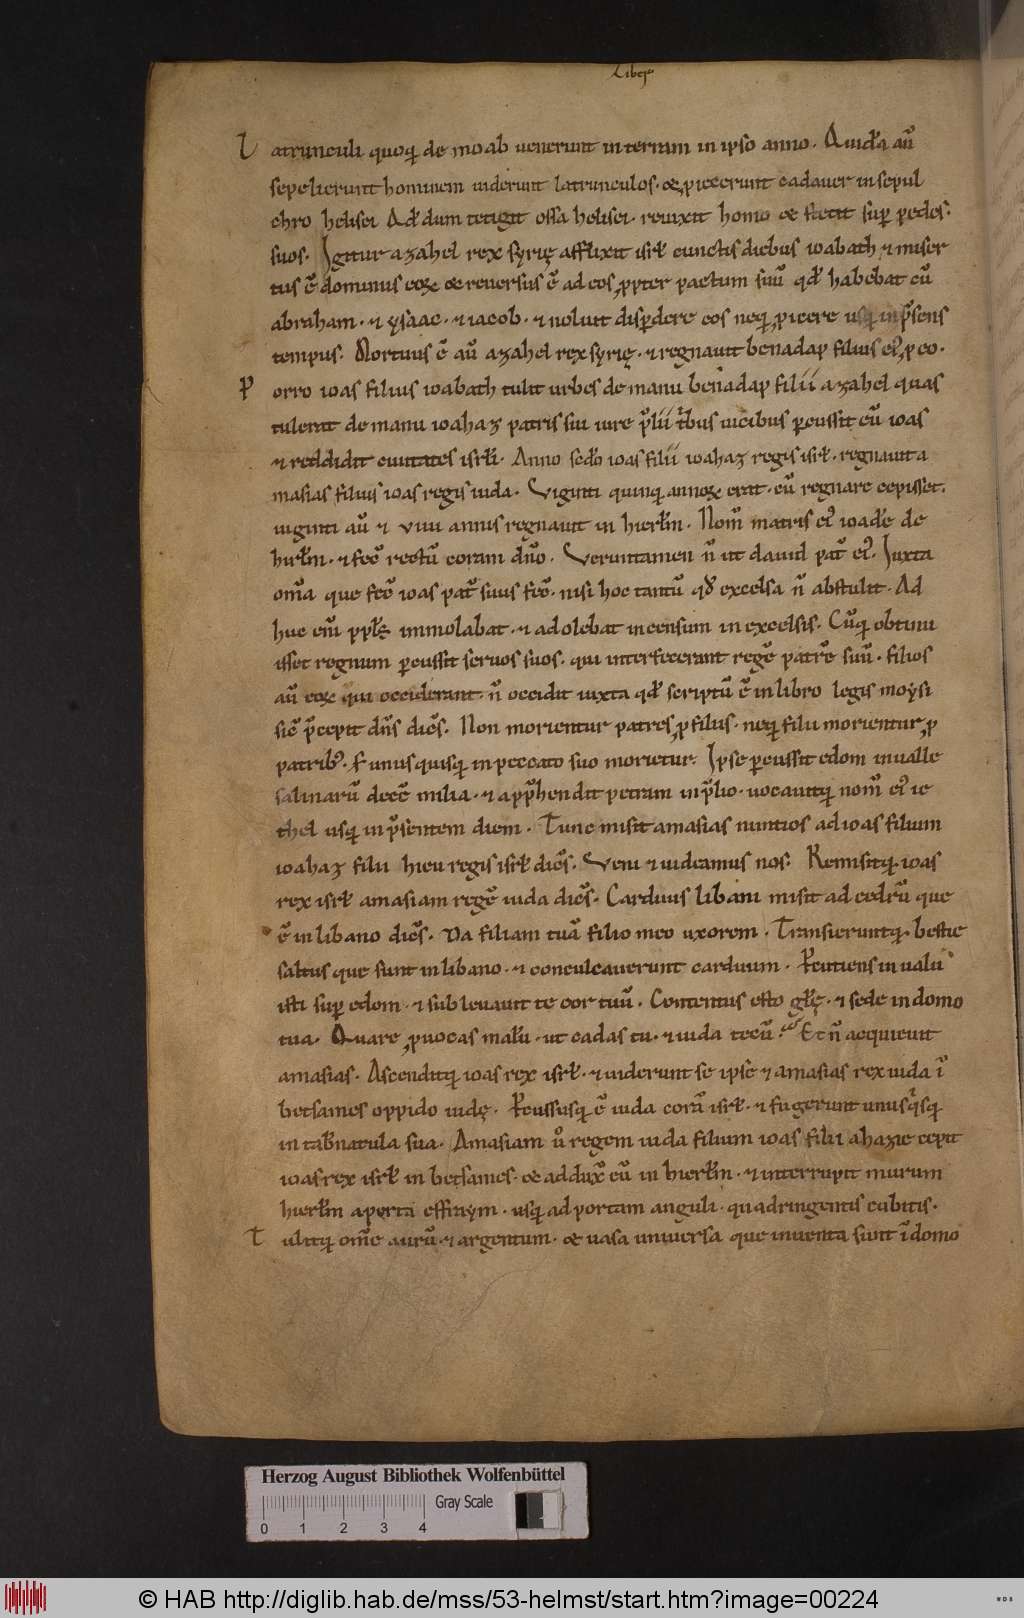 Liber
Latrunculi quoq; de moab uenerunt in terram in ipso anno. Quidā aū
sepelierunt hominem uiderunt latrunculos. & piecerunt cadauer in sepul
chro helisei Qđ dum tetigit ossa helisei. reuixit homo & stetit sup pedes.
suos. Igitur azahel rex syrię afflixit isrł cunctis diebus ioabath & miser
tus ē dominus eoꝝ & reuersus ē ad eos ꝓpter pactum suū qđ habebat cū
abraham. & ysaac. & iacob. & noluit disꝑdere eos neq; ꝓicere usq; in p̄sens
tempus. Mortuus ē aū azahel rex syrię. & regnauit benadap filius ei' ꝓ eo.
Porro ioas filius ioabath tulit urbes de manu benadap filii azahel quas
tulerat de manu ioahaz patris sui iure p̄lii t'bus uicibus ꝑcussit eū ioas
& reddidit ciuitates isrłi. Anno sčdo ioas filii ioahaz regis isrł. regnauit a
masias filius ioas regis iuda. Viginti quinq; annoꝝ erat. cū regnare cepisset.
uiginti aū & viiii annis regnauit in hierłm. Nom̄ matris ei' ioadē de
hirłm. & fec̄ rectū coram dn̄o. Veruntamen n̄ ut dauid pat̄ ei'. Iuxta
om̄a que fec̄ ioas pat̄ suus fec̄. nisi hoc tantū qđ excelsa n̄ abstulit. Ad
huc eni̅ ppłs immolabat. & adolebat incensum in excelsis. Cūq; obtinu
isset regnum ꝑcussit seruos suos. qui interfecerant regē patrē suū. filios
aū eoꝝ qui occiderant n̄ occidit iuxta qđ scriptū ē in libro legis moysi
sic̄ p̄cepit dn̄s dic̄s. Non morientur patres ꝓ filiis. neq; filii morientur ꝓ
patrib'. S; unusquisq; in peccato suo morietur. Ipse ꝑcussit edom in ualle
salinarū decē milia. & app̄hendit petram in p̄lio. uocauitq; nom̄ ei' ie
thel usq; in p̄sentem diem. Tunc misit amasias nuntios ad ioas filium
ioahaz filii hieu regis isrł dic̄s. Veni & uideamus nos. Remisitq; ioas
rex isrł amasiam regē iuda dic̄s. Carduus libani misit ad cedrū que
ē in libano dic̄s. Da filiam tuā filio meo uxorem. Transieruntq; bestie
saltus que sunt in libano. & conculcauerunt carduum. ꝑcutiens inualu
isti sup edom. & subleuauit te cor tuū. Contentus esto głę. & sede in domo
tua. Quare ꝓuocas malū. ut cadas tu. & iuda tecū. Et n̄ acquieuit
amasias. Ascenditq; ioas rex isrł. & uiderunt se ipse & amasias rex iuda ī
betsames oppido iudę. ꝑcussusq; ē iuda corā isrł. & fugerunt unusq̇sq;
in tabnacula sua. Amasiam u̇ regem iuda filium ioas filii ahazie cepit
ioas rex isrł in betsames. & addux̄ eū in hierłm. & interrupit murum
hierłm a porta effraym. usq; ad portam anguli. quadringentis cubitis.
Tulitq; om̄e aurū. & argentum. & uasa uniuersa que inuenta sunt ī domo
Herzog August Bibliothek Wolfenbüttel
Gray Scale
0 1 2 3 4
© HAB http://diglib.hab.de/mss/53-helmst/start.htm?image=00224